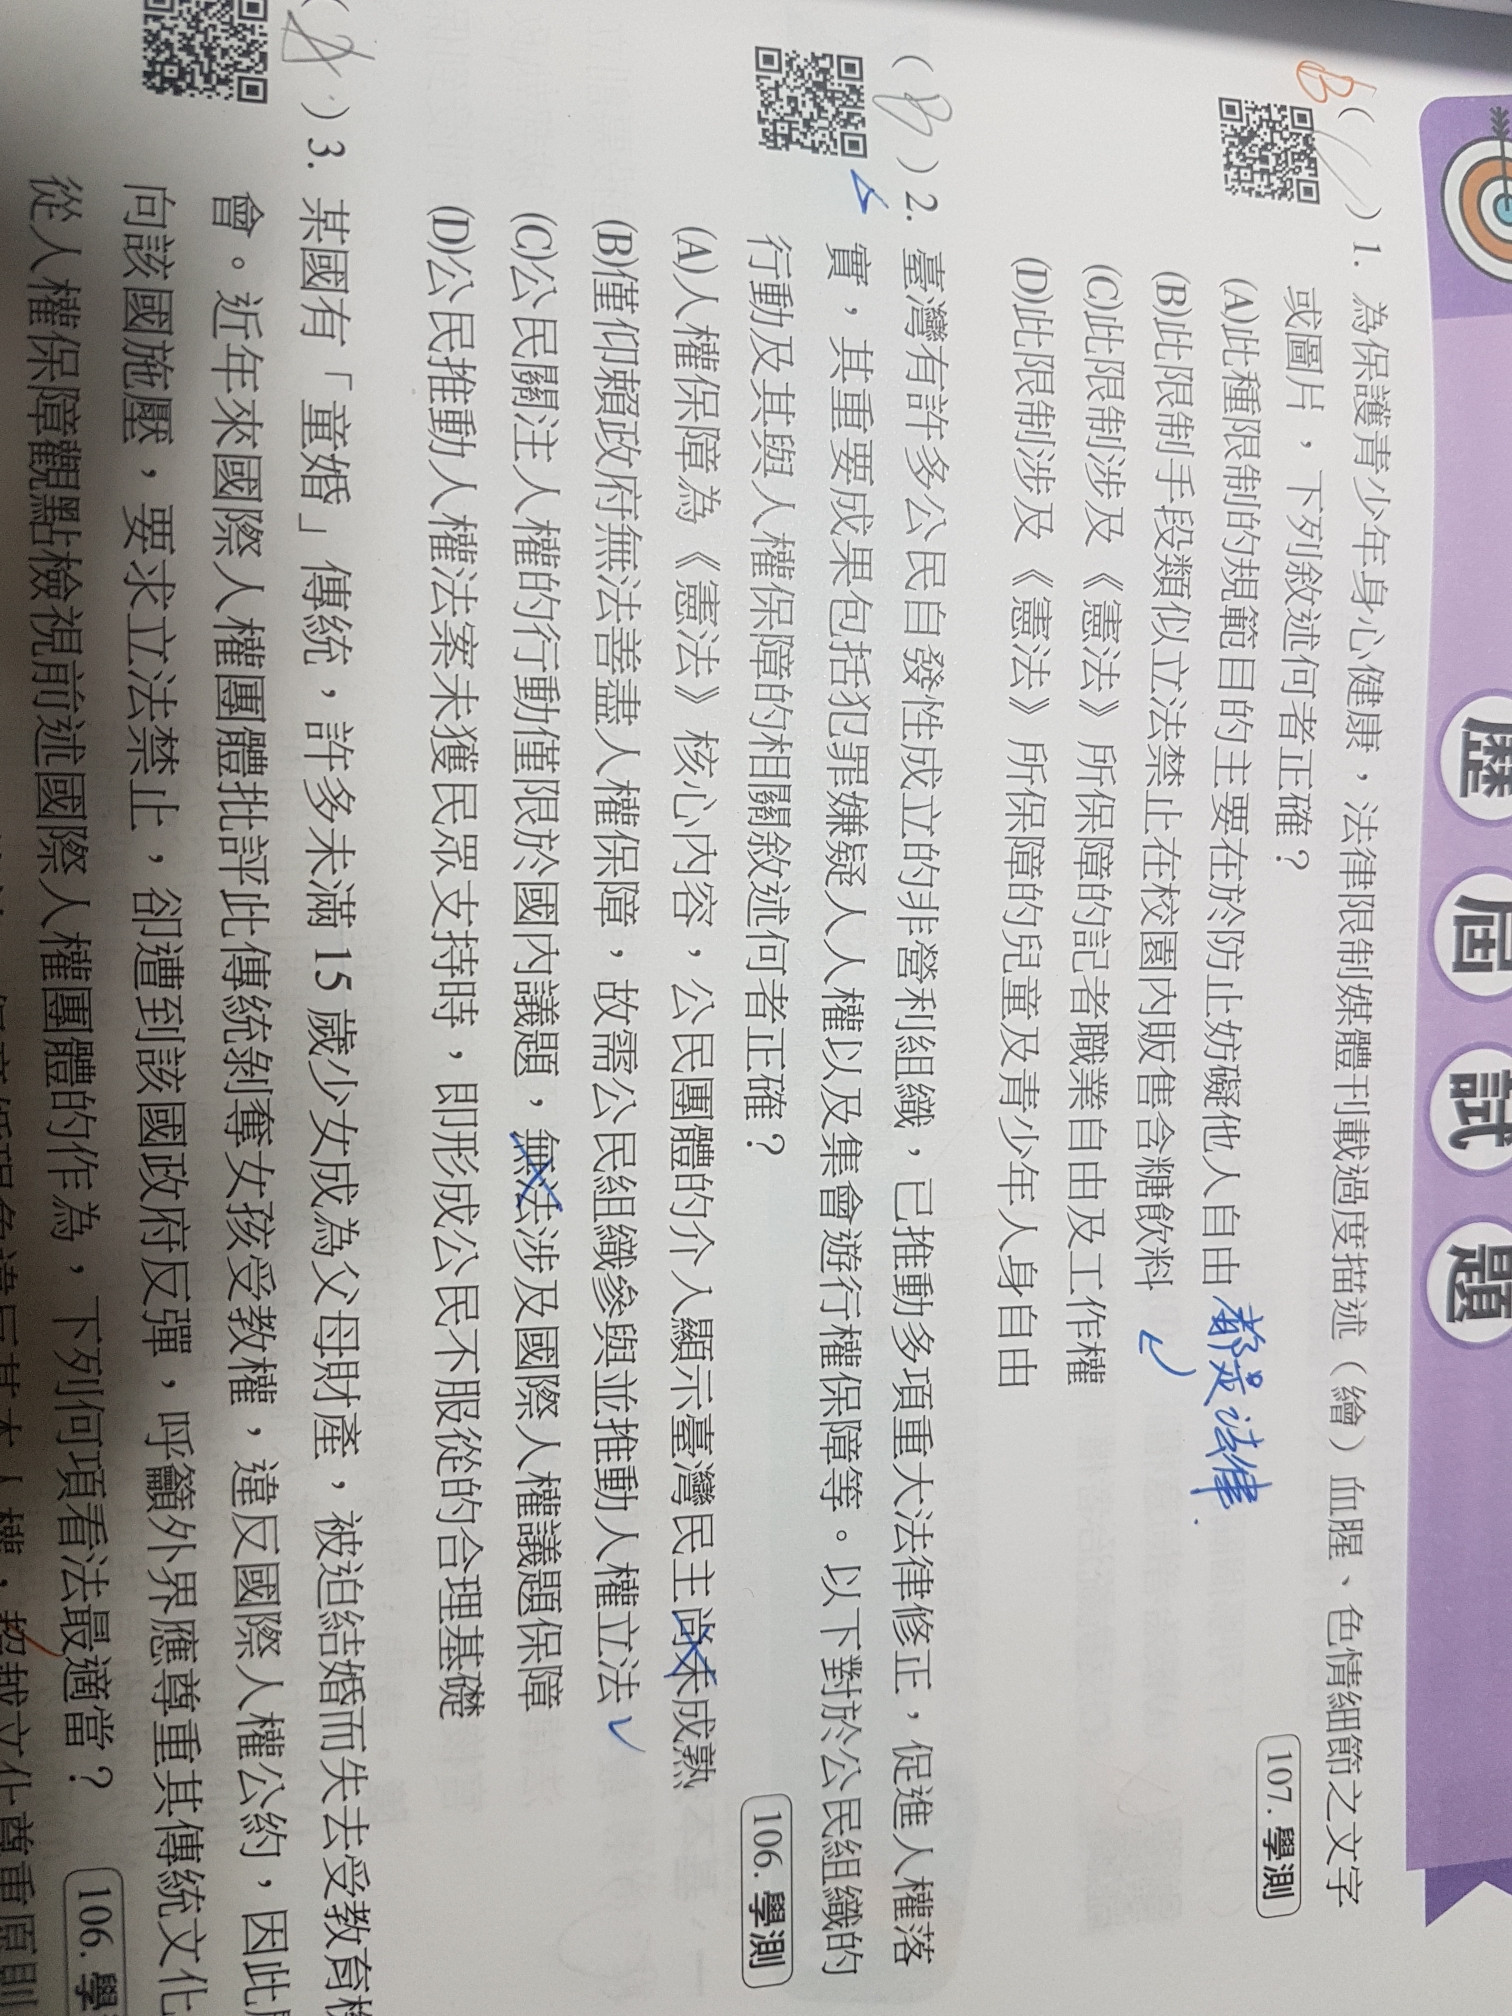 歷屆試題
B
( )1. 為保護青少年身心健康，法律限制媒體刊載過度描述（繪）血腥、色情細節之文字
或圖片，下列敘述何者正確？ 107.學測
(A)此種限制的規範目的主要在於防止妨礙他人自由 都是法律.
(B)此限制手段類似立法禁止在校園內販售含糖飲料
(C)此限制涉及《憲法》所保障的記者職業自由及工作權
(D)此限制涉及《憲法》所保障的兒童及青少年人身自由
(B)2. 臺灣有許多公民自發性成立的非營利組織，已推動多項重大法律修正，促進人權落
實，其重要成果包括犯罪嫌疑人人權以及集會遊行權保障等。以下對於公民組織的
行動及其與人權保障的相關敘述何者正確？ 106.學測
(A)人權保障為《憲法》核心內容，公民團體的介入顯示臺灣民主尚未成熟
(B)僅仰賴政府無法善盡人權保障，故需公民組織參與並推動人權立法
(C)公民關注人權的行動僅限於國內議題，無法涉及國際人權議題保障
(D)公民推動人權法案未獲民眾支持時，即形成公民不服從的合理基礎
( )3. 某國有「童婚」傳統，許多未滿 15 歲少女成為父母財產，被迫結婚而失去受教育
會。近年來國際人權團體批評此傳統剝奪女孩受教權，違反國際人權公約，因此
向該國施壓，要求立法禁止，卻遭到該國政府反彈，呼籲外界應尊重其傳統文化
從人權保障觀點檢視前述國際人權團體的作為，下列何項看法最適當？ 106.學